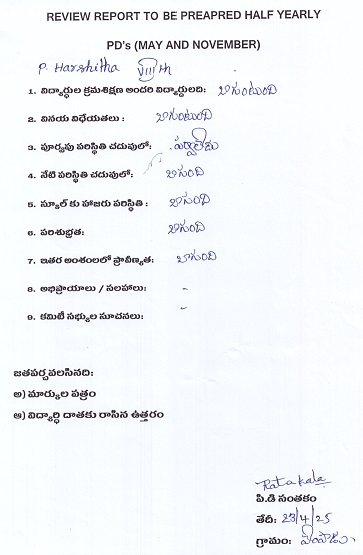 REVIEW REPORT TO BE PREAPRED HALF YEARLY
PD's (MAY AND NOVEMBER)
P. Harshitha VIII th
1. విద్యార్ధుల క్రమశిక్షణ అందరి విద్యార్థులది: బాగుంటుంది
2. వినయ విధేయతలు : బాగుంటుంది
3. పూర్వపు పరిస్థితి చదువులో: పర్వాలేదు
4. నేటి పరిస్థితి చదువులో: బాగుంది
5. స్కూల్ కు హాజరు పరిస్థితి : బాగుంది
6. పరిశుభ్రత: బాగుంది
7. ఇతర అంశంలలో ప్రావీణ్యత: బాగుంది
8. అభిప్రాయాలు / సలహాలు: -
9. కమిటీ సభ్యుల సూచనలు: -
జతపర్చవలసినది:
అ) మార్కుల పత్రం
ఆ) విద్యార్ధి దాతకు రాసిన ఉత్తరం
పి.డి సంతకం
తేదీ: 23/4/25
గ్రామం: